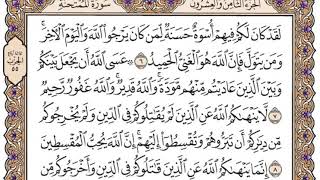 الجزء الثامن والعشرون سورة الممتحنة
لَقَدْ كَانَ لَكُمْ فِيهِمْ أُسْوَةٌ حَسَنَةٌ لِّمَن كَانَ يَرْجُوا۟ ٱللَّهَ وَٱلْيَوْمَ ٱلْـَٔاخِرَ ۚ
وَمَن يَتَوَلَّ فَإِنَّ ٱللَّهَ هُوَ ٱلْغَنِىُّ ٱلْحَمِيدُ ٦ عَسَى ٱللَّهُ أَن يَجْعَلَ بَيْنَكُمْ
وَبَيْنَ ٱلَّذِينَ عَادَيْتُم مِّنْهُم مَّوَدَّةً ۚ وَٱللَّهُ قَدِيرٌ ۚ وَٱللَّهُ غَفُورٌ رَّحِيمٌ ٧
لَّا يَنْهَىٰكُمُ ٱللَّهُ عَنِ ٱلَّذِينَ لَمْ يُقَٰتِلُوكُمْ فِى ٱلدِّينِ وَلَمْ يُخْرِجُوكُم
مِّن دِيَٰرِكُمْ أَن تَبَرُّوهُمْ وَتُقْسِطُوٓا۟ إِلَيْهِمْ ۚ إِنَّ ٱللَّهَ يُحِبُّ ٱلْمُقْسِطِينَ ٨
إِنَّمَا يَنْهَىٰكُمُ ٱللَّهُ عَنِ ٱلَّذِينَ قَٰتَلُوكُمْ فِى ٱلدِّينِ وَأَخْرَجُوكُم مِّن
الحزب
٥٥